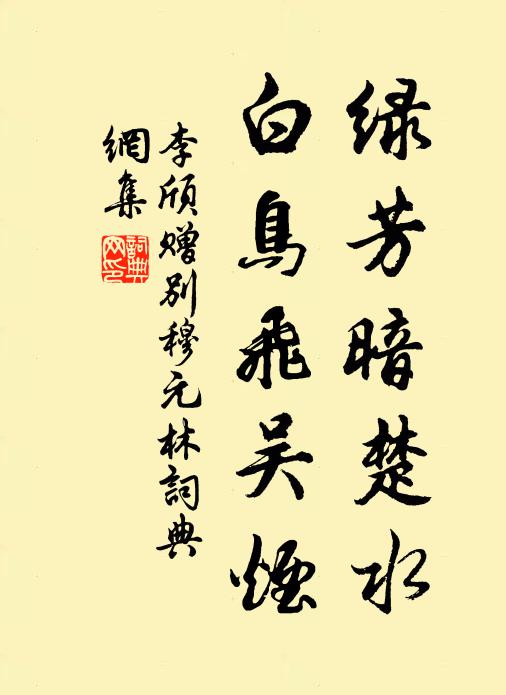 绿芳暗楚水
白鳥飛吴煙
李颀赠别穆元林詞典
網集
詞典
网印